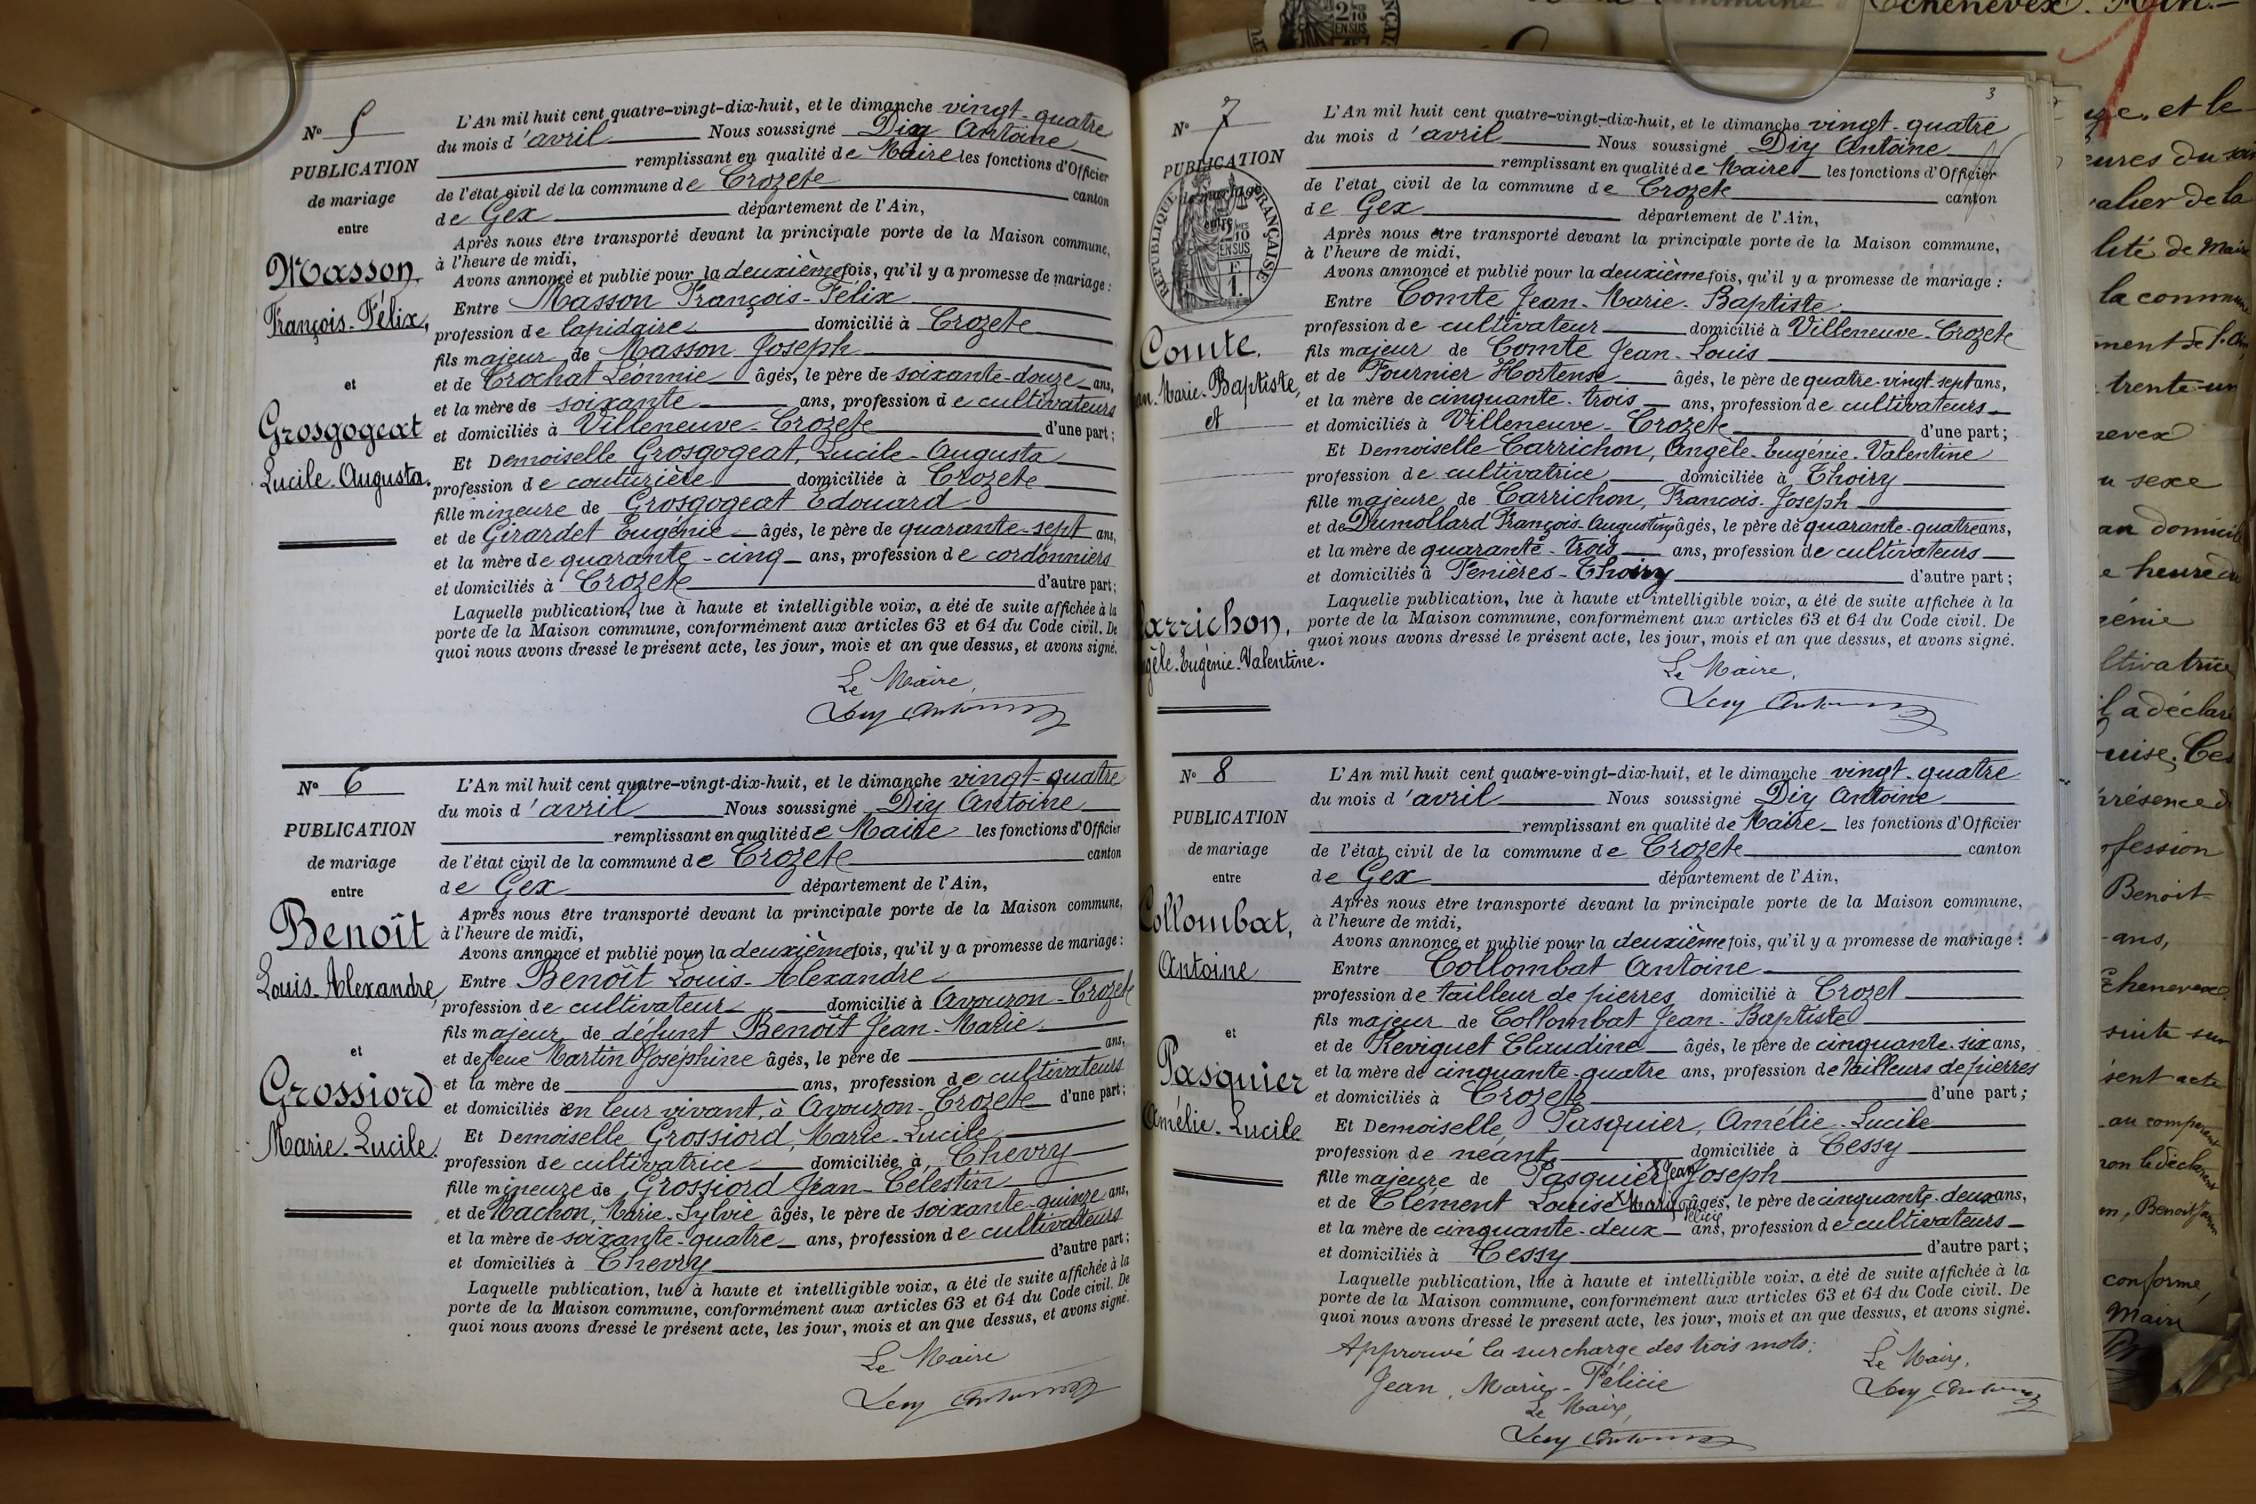 N° 5
PUBLICATION
de mariage
entre
Masson,
François-Félix,
et
Grosgogeat
Lucile-Augusta.
L'An mil huit cent quatre-vingt-dix-huit, et le dimanche vingt-quatre
du mois d'avril Nous soussigné Diy Antoine
remplissant en qualité de Maire les fonctions d'Officier
de l'état civil de la commune de Crozete canton
de Gex département de l'Ain,
Après nous être transporté devant la principale porte de la Maison commune,
à l'heure de midi,
Avons annoncé et publié pour la deuxième fois, qu'il y a promesse de mariage :
Entre Masson François-Félix
profession de lapidaire domicilié à Crozete
fils majeur de Masson Joseph
et de Crochat Léonnie âgés, le père de soixante-douze ans,
et la mère de soixante ans, profession de cultivateurs
et domiciliés à Villeneuve-Crozete d'une part ;
Et Demoiselle Grosgogeat, Lucile-Augusta
profession de couturière domiciliée à Crozete
fille mineure de Grosgogeat Edouard
et de Girardet Eugénie âgés, le père de quarante-sept ans,
et la mère de quarante-cinq ans, profession de cordonniers
et domiciliés à Crozete d'autre part ;
Laquelle publication, lue à haute et intelligible voix, a été de suite affichée à la
porte de la Maison commune, conformément aux articles 63 et 64 du Code civil. De
quoi nous avons dressé le présent acte, les jour, mois et an que dessus, et avons signé.
Le Maire,
N° 6
PUBLICATION
de mariage
entre
Benoît
Louis-Alexandre,
et
Grossiord
Marie-Lucile.
L'An mil huit cent quatre-vingt-dix-huit, et le dimanche vingt-quatre
du mois d'avril Nous soussigné Diy Antoine
remplissant en qualité de Maire les fonctions d'Officier
de l'état civil de la commune de Crozete canton
de Gex département de l'Ain,
Après nous être transporté devant la principale porte de la Maison commune,
à l'heure de midi,
Avons annoncé et publié pour la deuxième fois, qu'il y a promesse de mariage :
Entre Benoît Louis-Alexandre
profession de cultivateur domicilié à Avouzon-Crozete
fils majeur de défunt Benoît Jean-Marie
et de feue Martin Joséphine âgés, le père de ans,
et la mère de ans, profession de cultivateurs
et domiciliés en leur vivant, à Avouzon-Crozete d'une part ;
Et Demoiselle Grossiord, Marie-Lucile
profession de cultivatrice domiciliée à Chevry
fille mineure de Grossiord Jean-Célestin
et de Machon, Marie-Sylvie âgés, le père de soixante-quinze ans,
et la mère de soixante-quatre ans, profession de cultivateurs
et domiciliés à Chevry d'autre part ;
Laquelle publication, lue à haute et intelligible voix, a été de suite affichée à la
porte de la Maison commune, conformément aux articles 63 et 64 du Code civil. De
quoi nous avons dressé le présent acte, les jour, mois et an que dessus, et avons signé.
Le Maire
3
N° 7
PUBLICATION
de mariage
entre
RÉPUBLIQUE FRANÇAISE
Comte,
Marie-Baptiste,
et
arrichon,
gèle-Eugénie-Valentine.
L'An mil huit cent quatre-vingt-dix-huit, et le dimanche vingt-quatre
du mois d'avril Nous soussigné Diy Antoine
remplissant en qualité de Maire les fonctions d'Officier
de l'état civil de la commune de Crozete canton
de Gex département de l'Ain,
Après nous être transporté devant la principale porte de la Maison commune,
à l'heure de midi,
Avons annoncé et publié pour la deuxième fois, qu'il y a promesse de mariage :
Entre Comte Jean-Marie-Baptiste
profession de cultivateur domicilié à Villeneuve-Crozete
fils majeur de Comte Jean-Louis
et de Fournier Hortense âgés, le père de quatre-vingt-sept ans,
et la mère de cinquante-trois ans, profession de cultivateurs
et domiciliés à Villeneuve-Crozete d'une part ;
Et Demoiselle Carrichon, Angèle-Eugénie-Valentine
profession de cultivatrice domiciliée à Thoiry
fille majeure de Carrichon, François-Joseph
et de Dumollard François-Augustine âgés, le père de quarante-quatre ans,
et la mère de quarante-trois ans, profession de cultivateurs
et domiciliés à Fenières-Thoiry d'autre part ;
Laquelle publication, lue à haute et intelligible voix, a été de suite affichée à la
porte de la Maison commune, conformément aux articles 63 et 64 du Code civil. De
quoi nous avons dressé le présent acte, les jour, mois et an que dessus, et avons signé.
Le Maire,
N° 8
PUBLICATION
de mariage
entre
Collombat,
Antoine
et
Pasquier
Amélie-Lucile
L'An mil huit cent quatre-vingt-dix-huit, et le dimanche vingt-quatre
du mois d'avril Nous soussigné Diy Antoine
remplissant en qualité de Maire les fonctions d'Officier
de l'état civil de la commune de Crozete canton
de Gex département de l'Ain,
Après nous être transporté devant la principale porte de la Maison commune,
à l'heure de midi,
Avons annoncé et publié pour la deuxième fois, qu'il y a promesse de mariage :
Entre Collombat Antoine
profession de tailleur de pierres domicilié à Crozet
fils majeur de Collombat Jean-Baptiste
et de Reviguet Claudine âgés, le père de cinquante-six ans,
et la mère de cinquante-quatre ans, profession de tailleurs de pierres
et domiciliés à Crozete d'une part ;
Et Demoiselle Pasquier, Amélie-Lucile
profession de néant domiciliée à Cessy
fille majeure de Pasquier x Jean Joseph
et de Clément Louise x Marie Félicie âgés, le père de cinquante-deux ans,
et la mère de cinquante-deux ans, profession de cultivateurs
et domiciliés à Cessy d'autre part ;
Laquelle publication, lue à haute et intelligible voix, a été de suite affichée à la
porte de la Maison commune, conformément aux articles 63 et 64 du Code civil. De
quoi nous avons dressé le présent acte, les jour, mois et an que dessus, et avons signé.
Approuvé la surcharge des trois mots :
Jean, Marie-Félicie
Le Maire,
Le Maire,
Echenevex
et le
alier de la
lité de Maire
la commune
trente-un
u sexe
an domicile
heure du
énie
ltivatrice
a déclaré
présence d
ofession
Benoit
ans,
Echenevex
suite sur
sent acte
au comparant
Benoit
conforme,
Maire